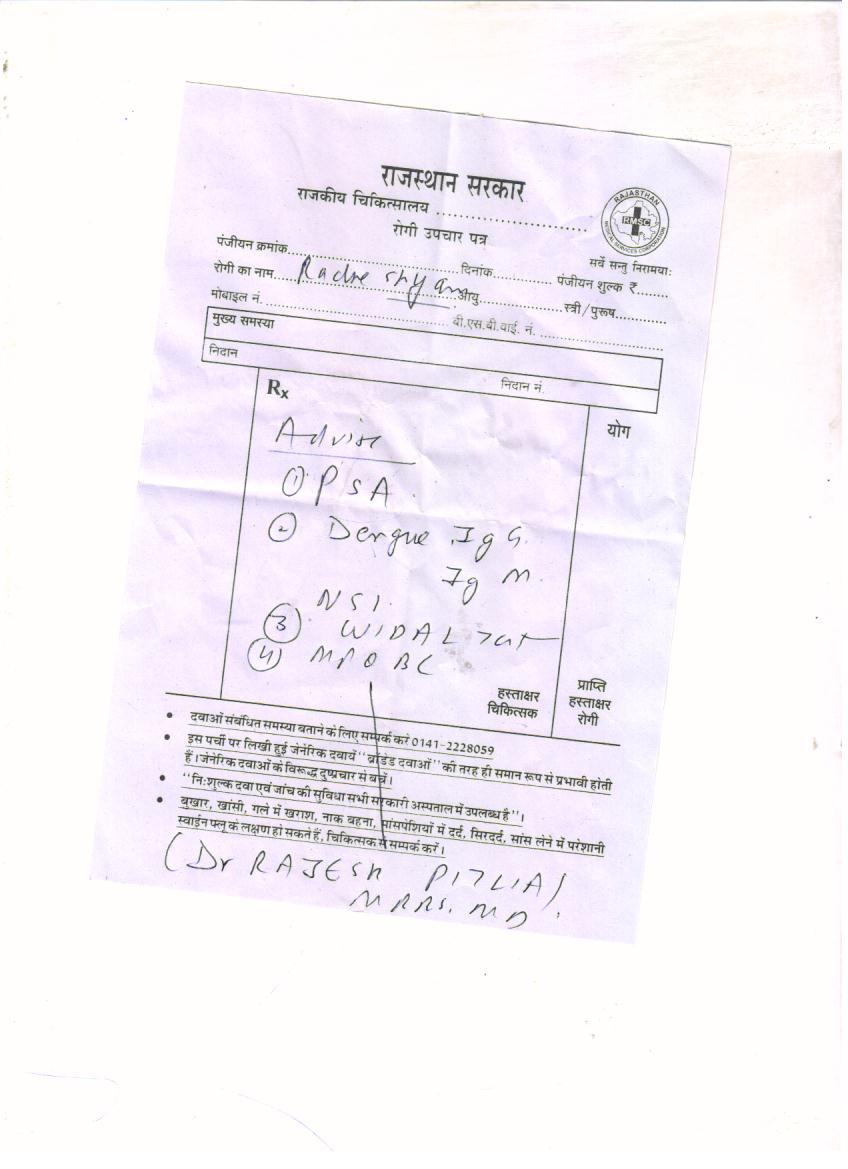 राजस्थान सरकार
राजकीय चिकित्सालय ..............................
रोगी उपचार पत्र
RAJASTHAN
RMSC
MEDICAL SERVICES CORPORATION
सर्वे सन्तु निरामयाः
पंजीयन क्रमांक.............................. दिनांक.............. पंजीयन शुल्क ₹.......
रोगी का नाम..... Radhe shyam आयु.................. स्त्री/पुरूष............
मोबाइल नं. .............................. बी.एस.बी.वाई. नं. ..............................
मुख्य समस्या
निदान निदान नं.
Rx योग
Advise
① PSA
② Dengue IgG.
Ig M.
NS1.
③ WIDAL Test
④ BC
हस्ताक्षर चिकित्सक
प्राप्ति हस्ताक्षर रोगी
• दवाओं संबंधित समस्या बताने के लिए सम्पर्क करे 0141-2228059
• इस पर्ची पर लिखी हुई जेनेरिक दवायें "ब्रांडेड दवाओं" की तरह ही समान रूप से प्रभावी होती
हैं। जेनेरिक दवाओं के विरूद्ध दुष्प्रचार से बचें।
• "नि:शुल्क दवा एवं जांच की सुविधा सभी सरकारी अस्पताल में उपलब्ध है"।
• बुखार, खांसी, गले में खराश, नाक बहना, मांसपेशियों में दर्द, सिरदर्द, सांस लेने में परेशानी
स्वाईन फ्लू के लक्षण हो सकते हैं, चिकित्सक से सम्पर्क करें।
(Dr RAJESH
MBBS. MD.